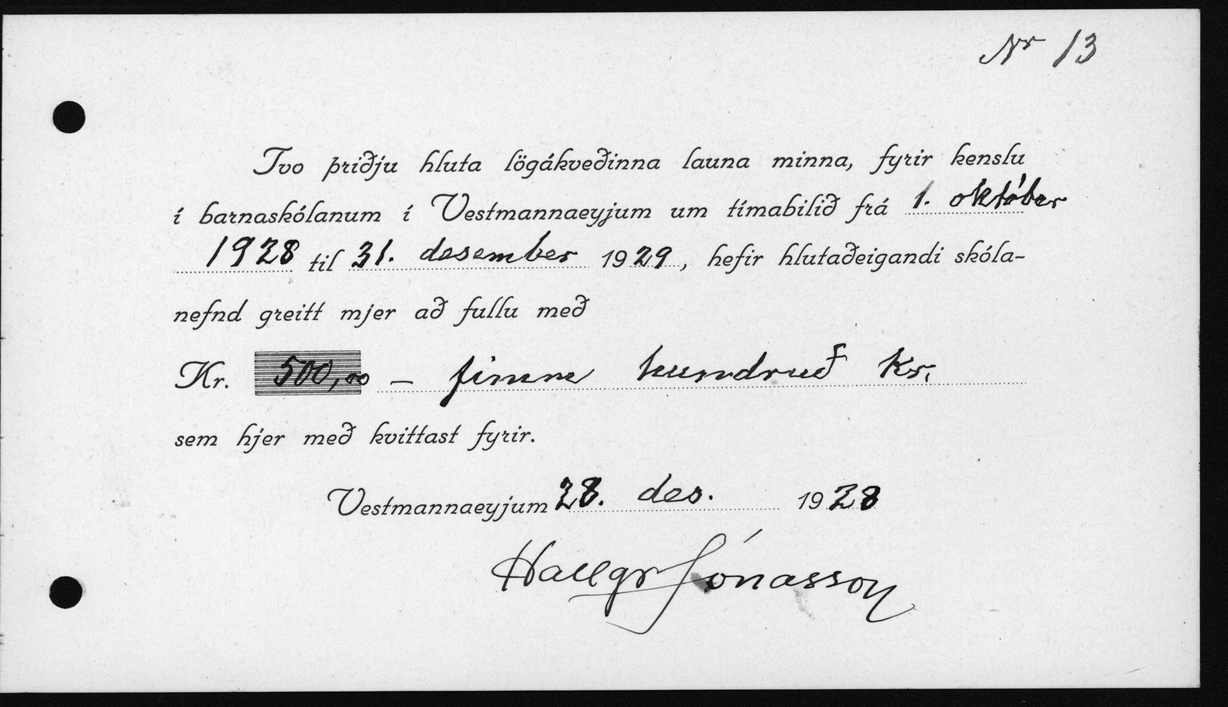 Nr 13
Tvo þriðju hluta lögákveðinna launa minna, fyrir kenslu
í barnaskólanum í Vestmannaeyjum um tímabilið frá 1. október
1928 til 31. desember 1929, hefir hlutaðeigandi skóla-
nefnd greitt mjer að fullu með
Kr. 500,00 — fimm hundruð kr.
sem hjer með kvittast fyrir.
Vestmannaeyjum 28. des. 1928
Hallgr Jónasson